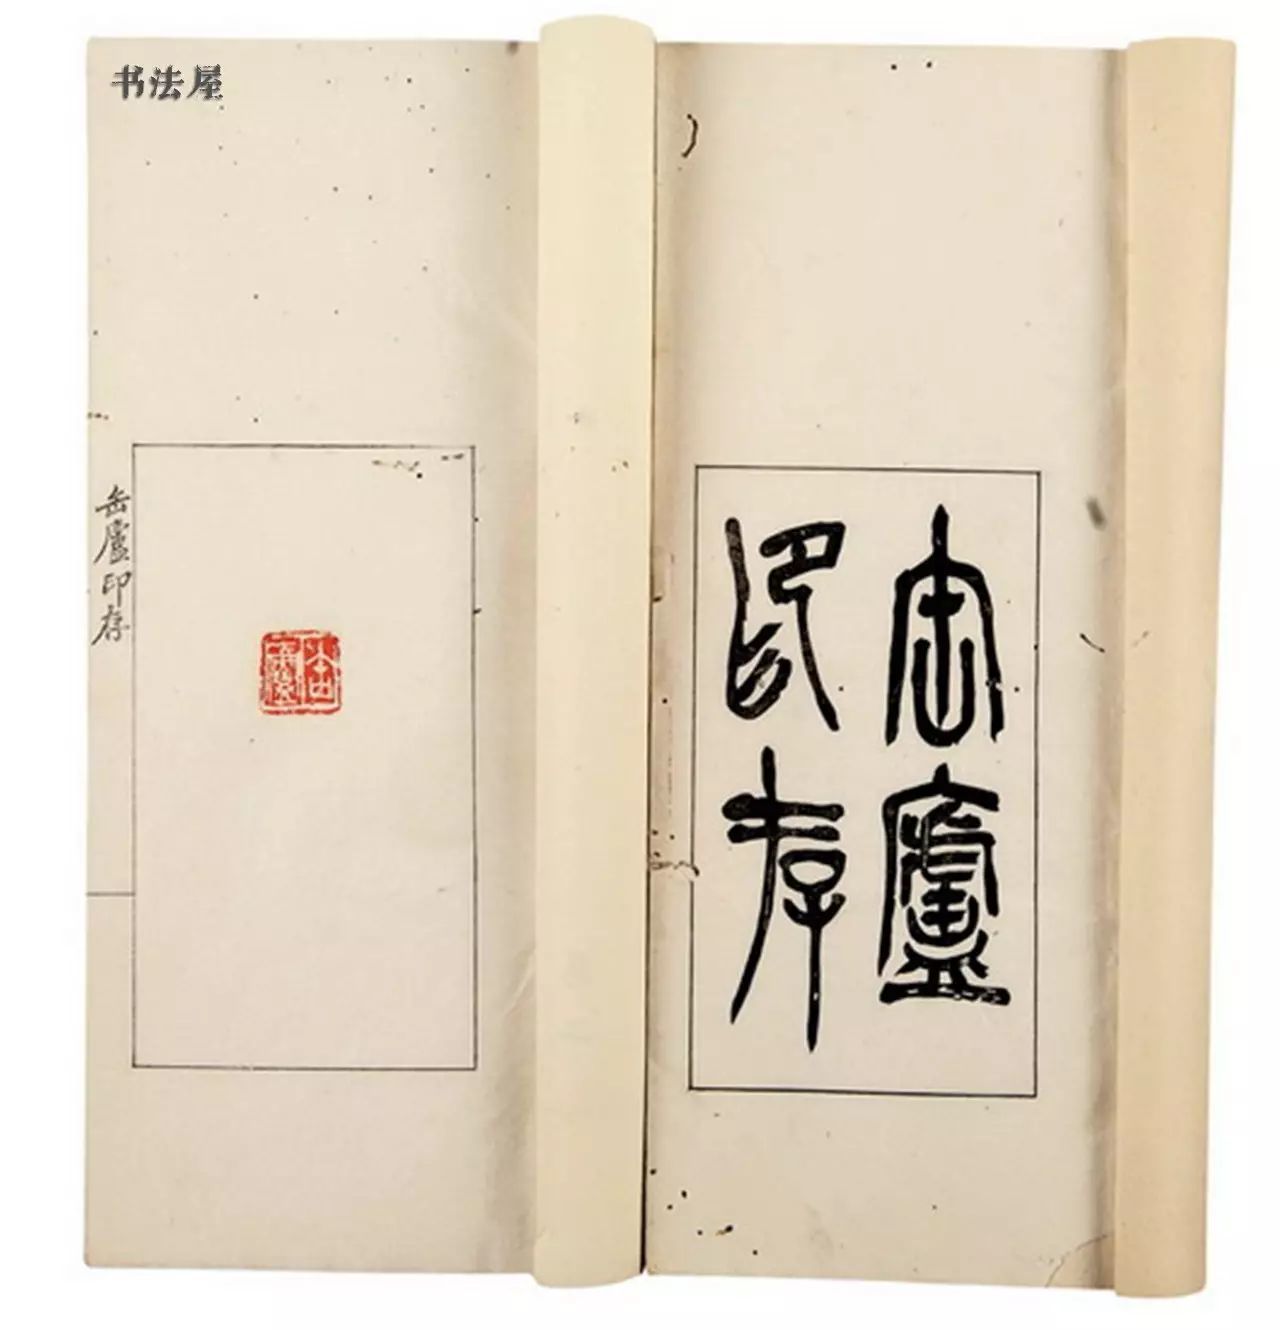 书法屋
缶廬
印存
缶廬印存